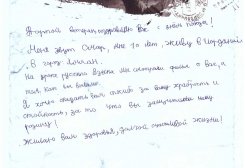 Дорогой ветеран, поздравляю Вас с днём победы!
Меня зовут Омар, мне 10 лет, живу в Иордании,
в город Амман.
На уроке русского языка мы смотрели фильм о вас, и
там как вы воевали.
Я хочу сказать вам спасибо за вашу храбрость и
стойкость, за то что вы защитили нашу
родину!
Желаю вам здоровья, долгой счастливой жизни!